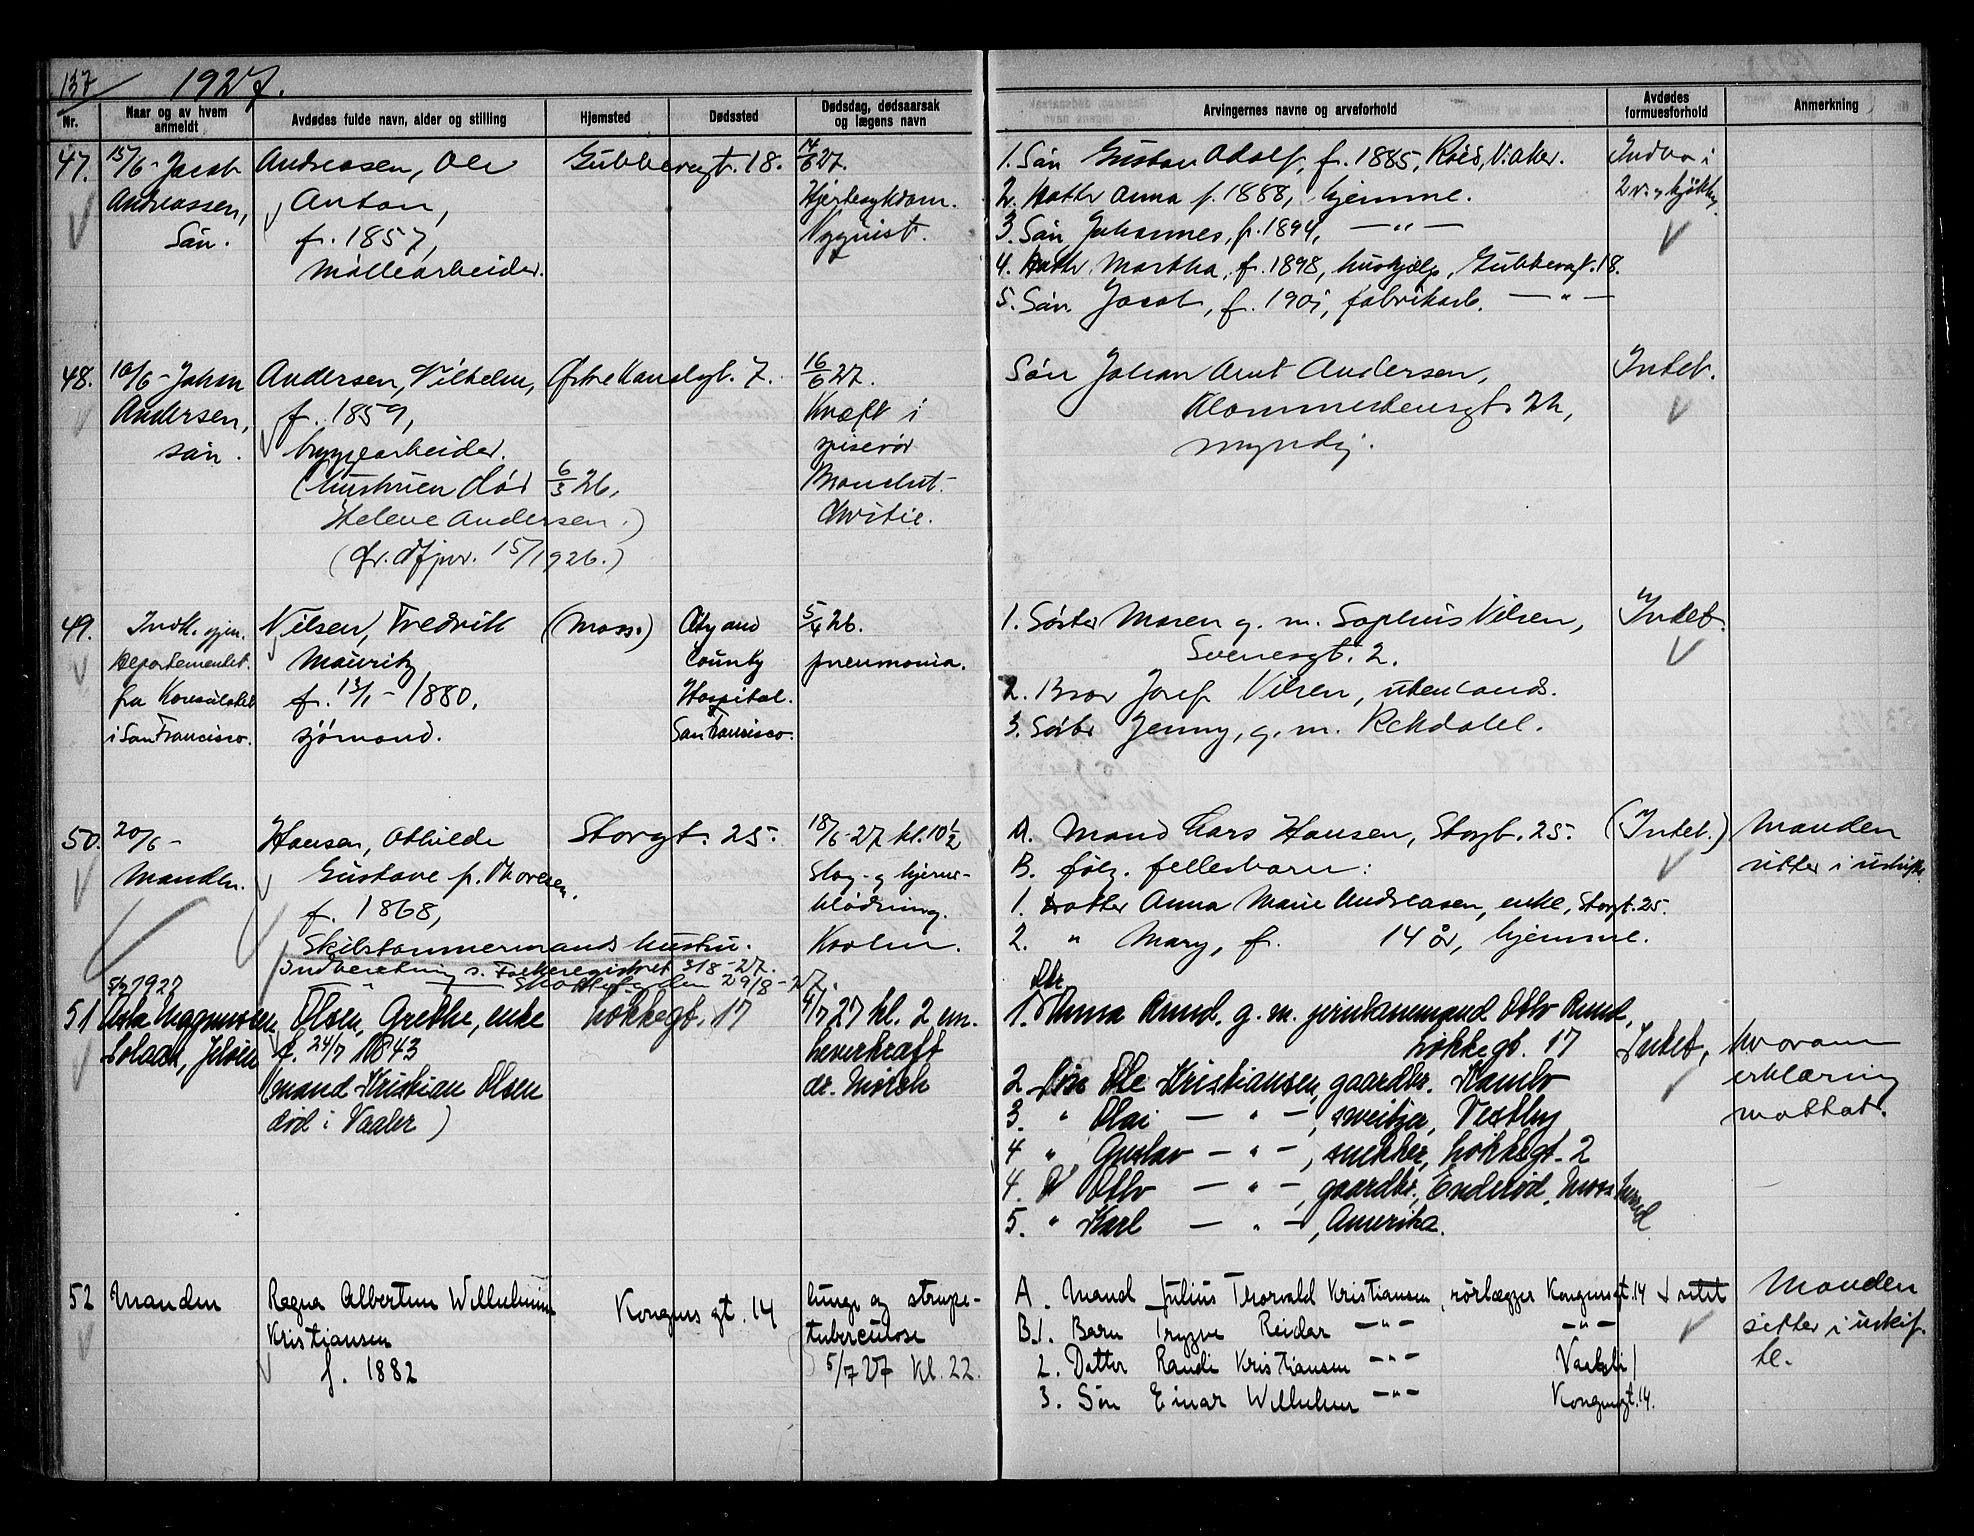 137
1927.
Nr.
Naar og av hvem anmeldt
Avdødes fulde navn, alder og stilling
Hjemsted
Dødssted
Dødsdag, dødsaarsak og lægens navn
Arvingernes navne og arveforhold
Avdødes formuesforhold
Anmerkning
47.
15/6 - Jacob
Andreassen,
Søn.
Andreasen, Ole
Anton,
f. 1857,
Møllearbeider.
Gubberogt. 18.
14/6 27.
Hjertesykdom.
Nyquist.
1. Søn Gustav Adolf, f. 1885, V. Aker.
2. Datter Anna f. 1888, hjemme.
3. Søn Johannes, f. 1894, — " —
4. Datter Martha, f. 1898, hushjælp, Gubberogt. 18.
5. Søn Jacob, f. 1901, fabrikarb. — " —
Indbo i
2 v. og kjøkken.
48.
Johan
Andersen,
søn.
Andersen, Vilhelm,
f. 1859,
bryggearbeider.
(hustruen død 6/3 26,
Helene Andersen.)
15/1926.)
Østre Kanalgt. 7.
16/6 27.
Kræft i
spiserør
Christie.
Søn Johan Arnt Andersen,
myndig.
Intet.
49.
departementet
fra Konsulatet
i San Francisco.
Nilsen, Fredrik
Mauritz
f. 13/1 - 1880,
sjømand.
(Moss.)
City and
County
Hospital.
San Francisco.
5/4 26.
pneumonia.
1. Søster Maren g. m. Sophus Nilsen,
Svenesgt. 2.
2. Bror Josef Nilsen, utenlands.
3. Søster Jenny, g. m. Rekdahl.
Intet.
50.
20/6 -
Manden.
Hansen, Othilde
Gustave f. Thoresen,
f. 1868,
Skibstømmermands hustru.
Indberetning s. Folkeregistret 31/8 - 27.
— " — 29/8 - 27.
Storgt. 25.
18/6 - 27 kl. 10 1/2
Slag - og hjerne-
blødning.
A. Mand Lars Hansen, Storgt. 25.
B. følg. fellesbarn:
1. Datter Anna Marie Andreasen, enke, Storgt. 25.
2. " Mary, f. 14 år, hjemme.
(Intet.)
Manden
sitter i uskifte.
51
5/7 1927
Asta Magnussen
Solaas, Jeløen
Olsen, Grethe, enke
f. 24/7 1843
(mand Kristian Olsen
død i Vaaler)
Løkkegt. 17
4/7 27 kl. 2 em.
Leverkræft
dr. Mørch
Dtr.
1. Anna Amd. g. m. Otto Amd.,
Løkkegt. 17
2 Søn Ole Kristiansen, gaardbr. Kambo
3. " Olai — " —, Vestby
4 " Gustav — " —, snekker, Løkkegt. 2
4. " Otto — " —, gaardbr., Enderød, Moss herred
5. " Karl — " —, Amerika.
Intet,
hvorom
erklæring
mottat.
52
Manden
Ragna Albertine Wilhelmine
Kristiansen
f. 1882
Kongens gt. 14
lunge og strupe-
tuberculose
5/7 27 kl. 22.
A. Mand Julius Thorvald Kristiansen, rørlægger Kongensgt. 14
B. 1. Barn Trygve Reidar — " — — " —
2. Datter Randi Kristiansen — " —
3. Søn Einar Wilhelm — " — Kongensgt. 14.
Manden
sitter i uskif-
te.